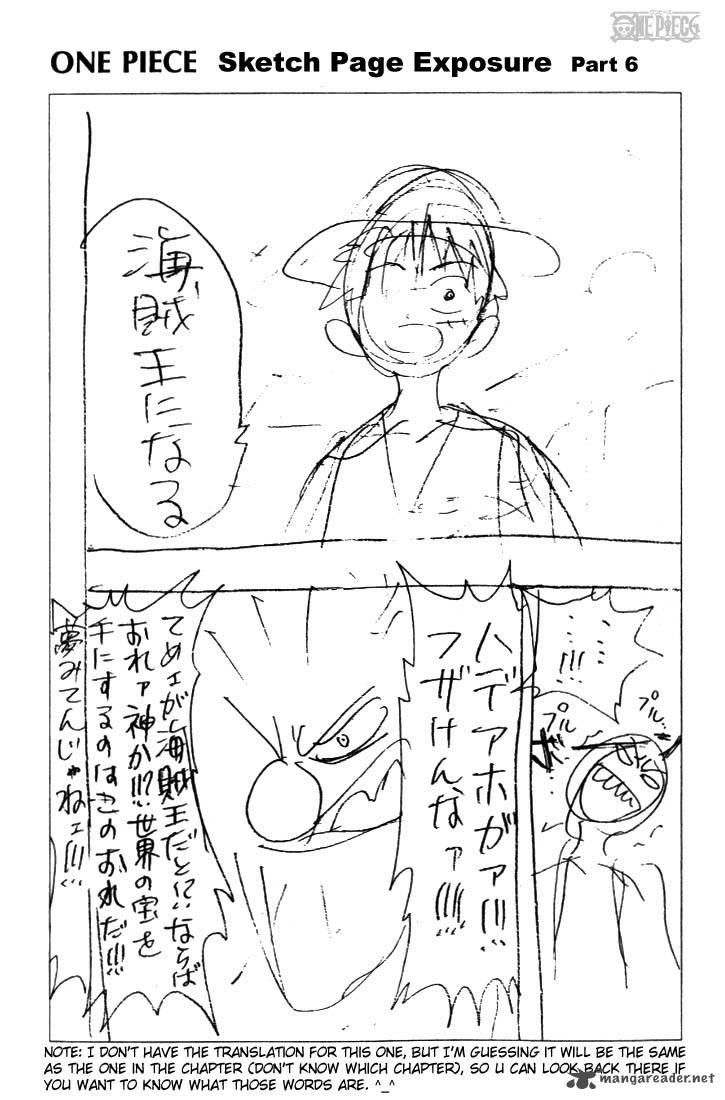 ワンピース
ONE PIECE
ONE PIECE Sketch Page Exposure Part 6
海賊
王になる
!!!
プル
プル…
ハデアホがァ!!!
フザけんなァ!!!!
てめェが海賊王だと!?ならば
おれァ神か!!?世界の宝を
手にするのはこのおれだ!!!
夢みてんじゃねェ!!!!
NOTE: I DON'T HAVE THE TRANSLATION FOR THIS ONE, BUT I'M GUESSING IT WILL BE THE SAME
AS THE ONE IN THE CHAPTER (DON'T KNOW WHICH CHAPTER), SO U CAN LOOK BACK THERE IF
YOU WANT TO KNOW WHAT THOSE WORDS ARE. ^_^
mangareader.net